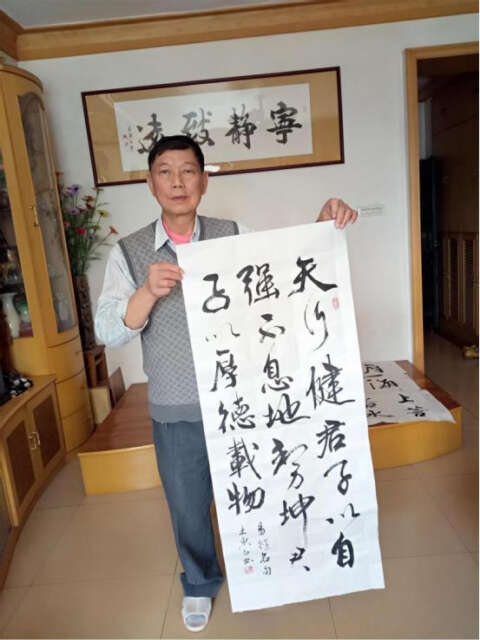 寧靜致遠
天行健君子以自
强不息地势坤君
子以厚德載物
易經名句